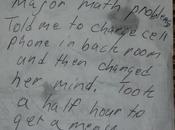 Major math problems
Told me to charge cell
phone in back room
and then changed
her mind. Took
a half hour to
get a menu